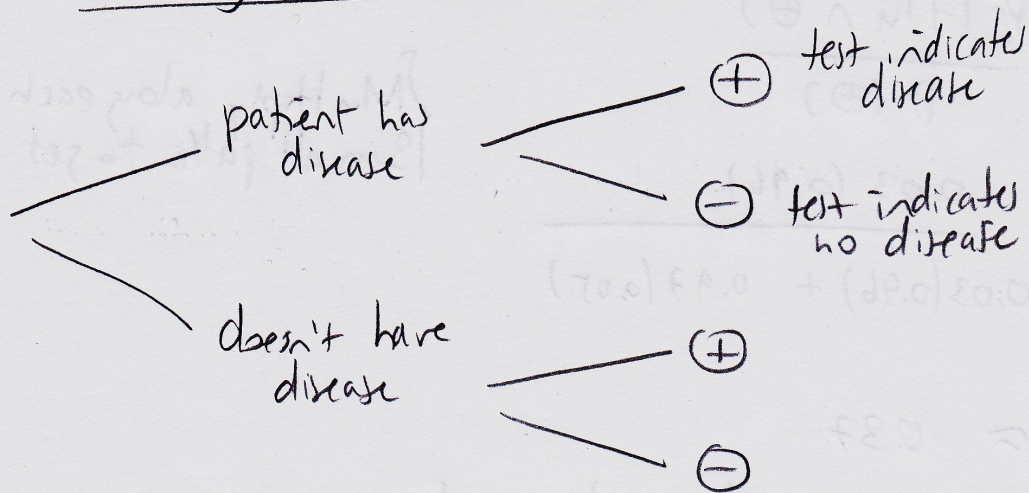 patient has
disease
⊕ test indicates
disease
⊖ test indicates
no disease
doesn't have
disease
⊕
⊖